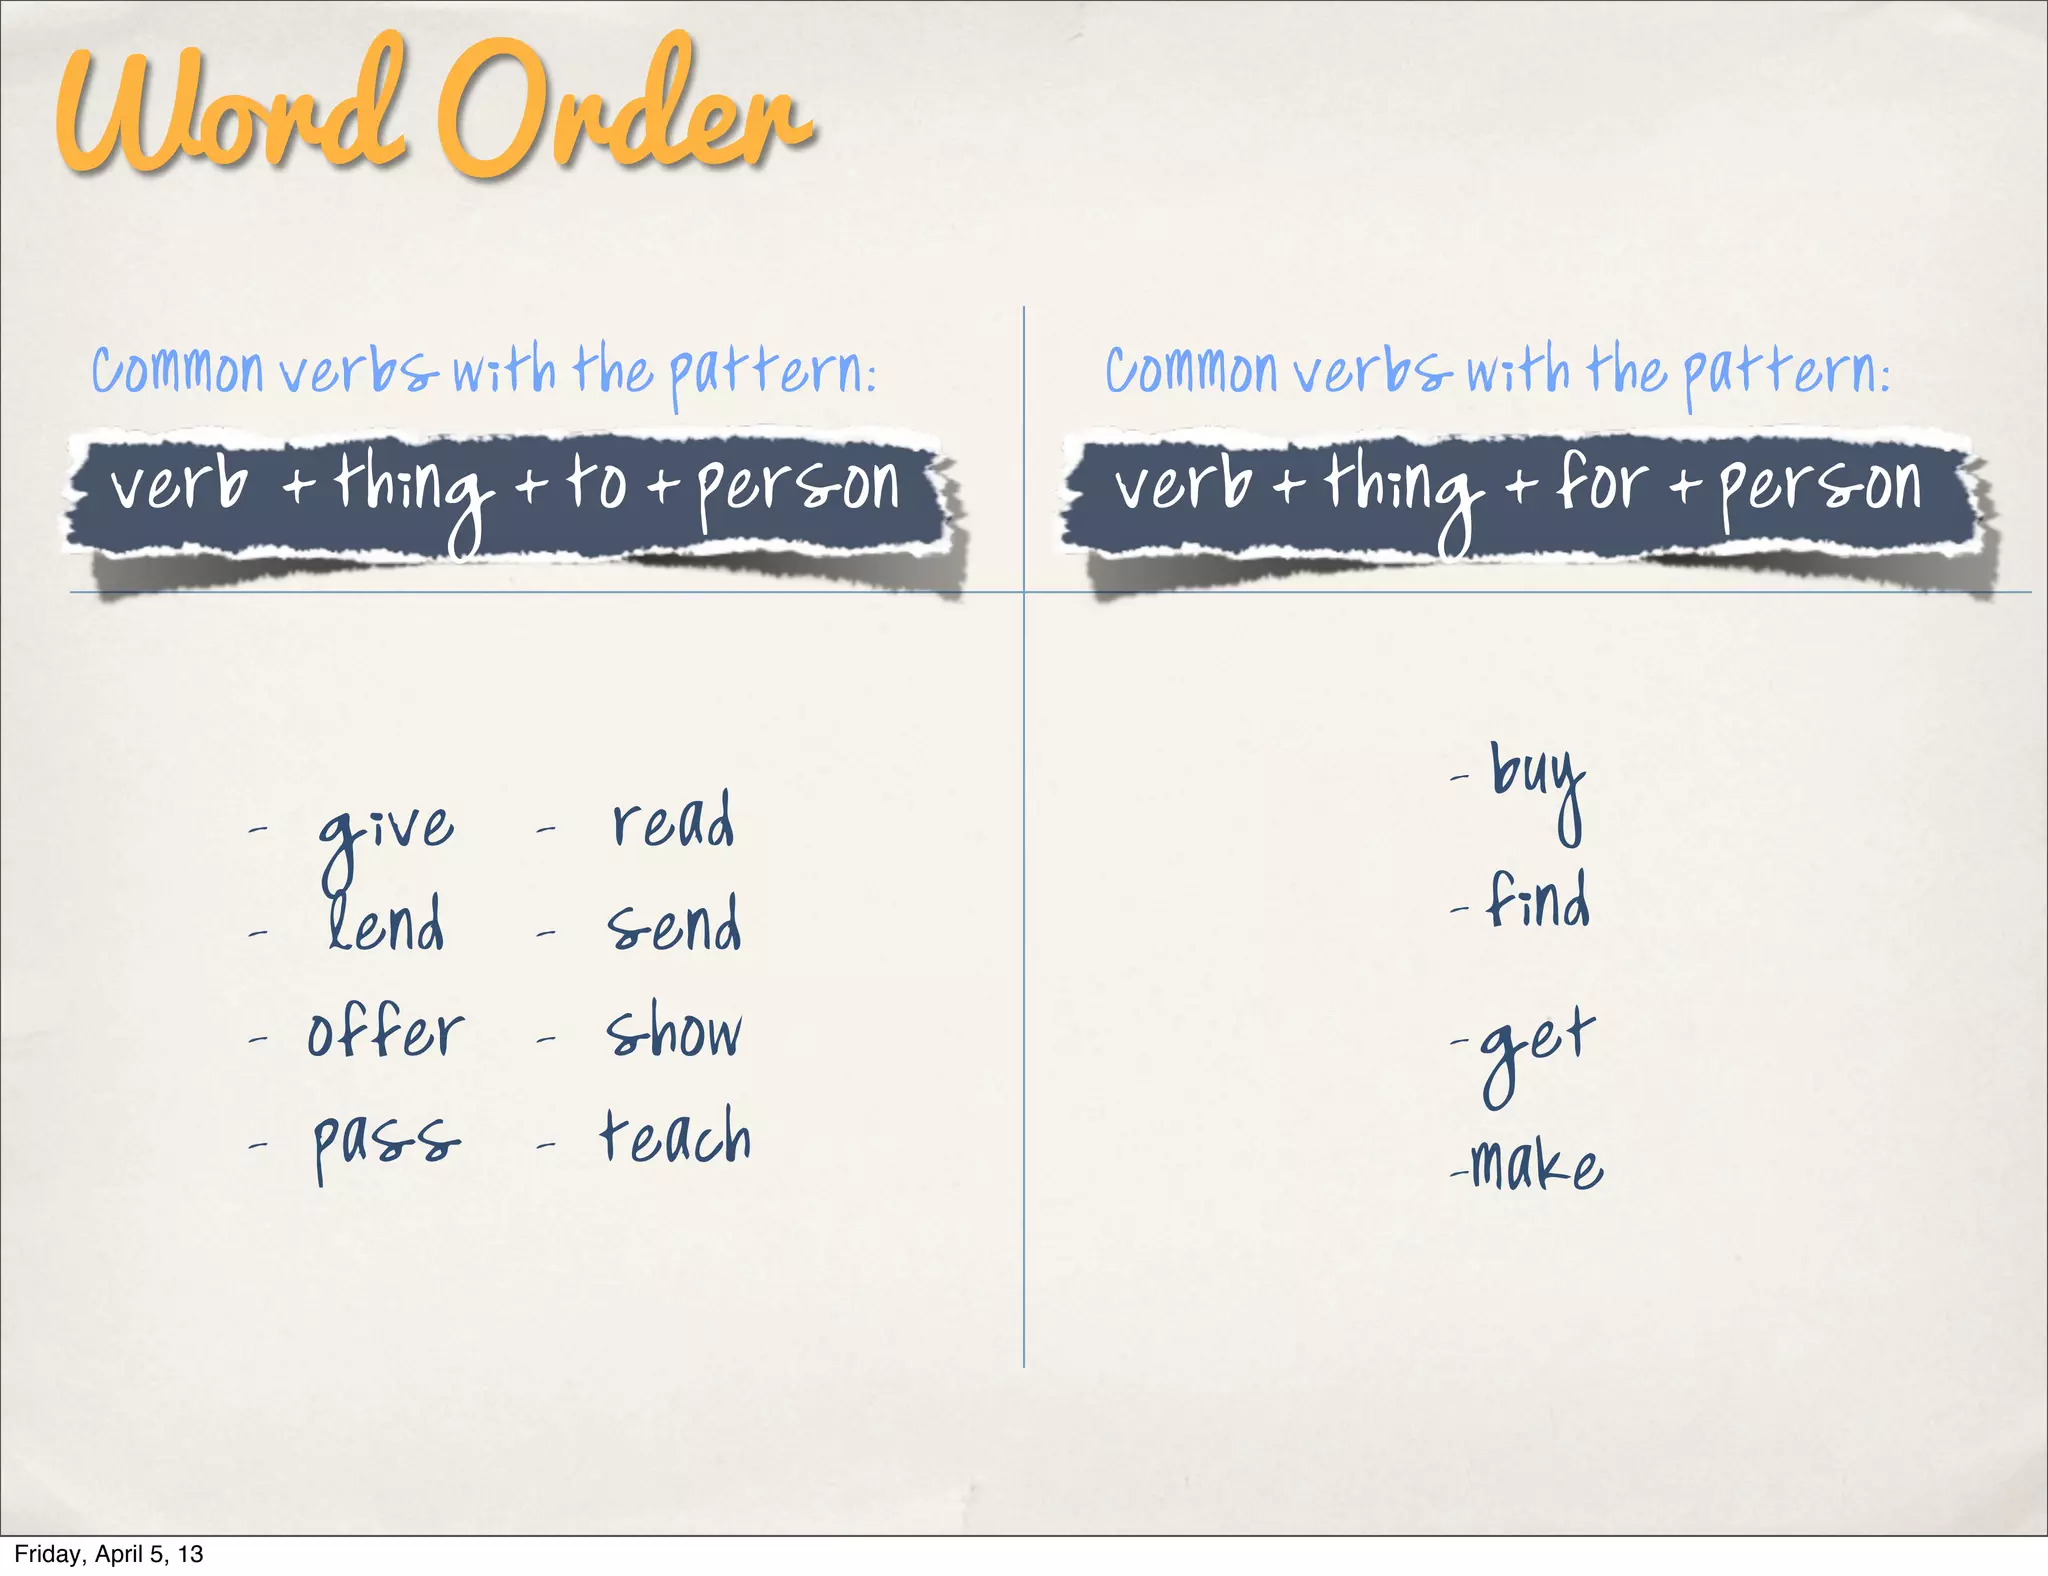 Word Order
Common verbs with the pattern:
verb + thing + to + person
- give - read
- lend - send
- offer - show
- pass - teach
Common verbs with the pattern:
verb + thing + for + person
- buy
- find
- get
-make
Friday, April 5, 13